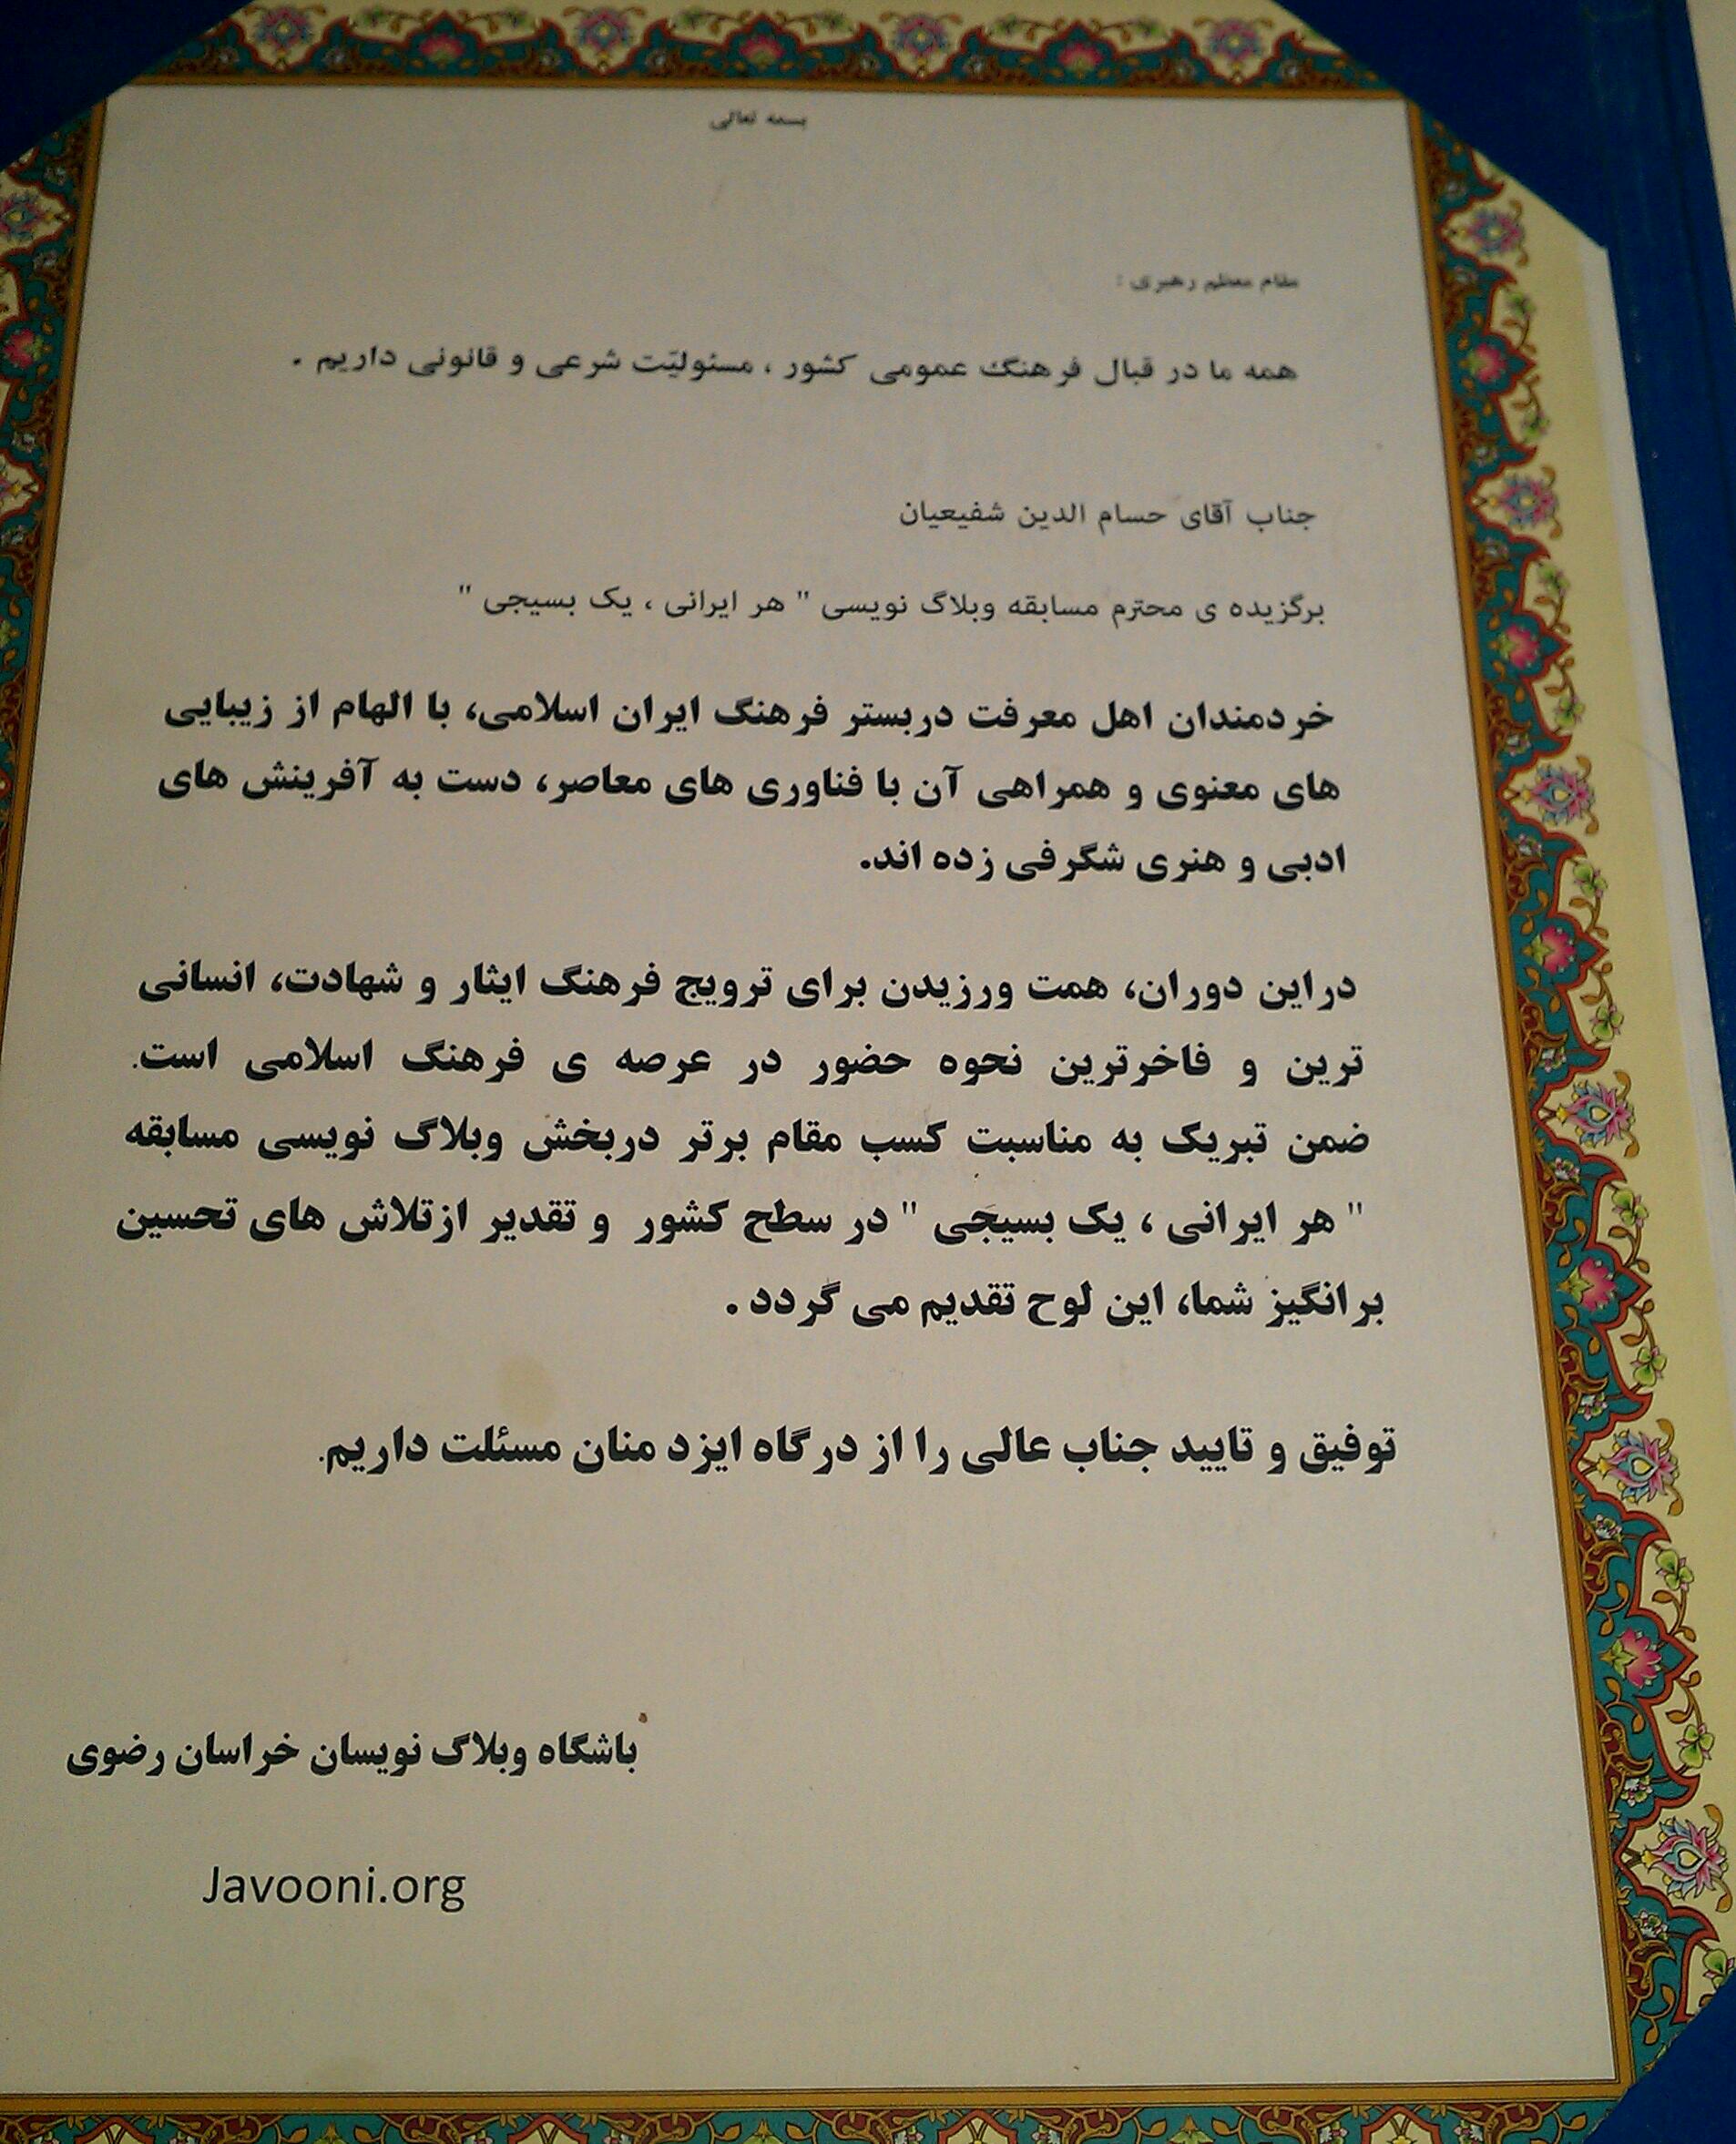 بسمه تعالی
مقام معظم رهبری :
همه ما در قبال فرهنگ عمومی کشور ، مسئولیّت شرعی و قانونی داریم .
جناب آقای حسام الدین شفیعیان
برگزیده ی محترم مسابقه وبلاگ نویسی " هر ایرانی ، یک بسیجی "
خردمندان اهل معرفت دربستر فرهنگ ایران اسلامی، با الهام از زیبایی
های معنوی و همراهی آن با فناوری های معاصر، دست به آفرینش های
ادبی و هنری شگرفی زده اند.
دراین دوران، همت ورزیدن برای ترویج فرهنگ ایثار و شهادت، انسانی
ترین و فاخرترین نحوه حضور در عرصه ی فرهنگ اسلامی است.
ضمن تبریک به مناسبت کسب مقام برتر دربخش وبلاگ نویسی مسابقه
" هر ایرانی ، یک بسیجی " در سطح کشور و تقدیر ازتلاش های تحسین
برانگیز شما، این لوح تقدیم می گردد .
توفیق و تایید جناب عالی را از درگاه ایزد منان مسئلت داریم.
باشگاه وبلاگ نویسان خراسان رضوی
Javooni.org